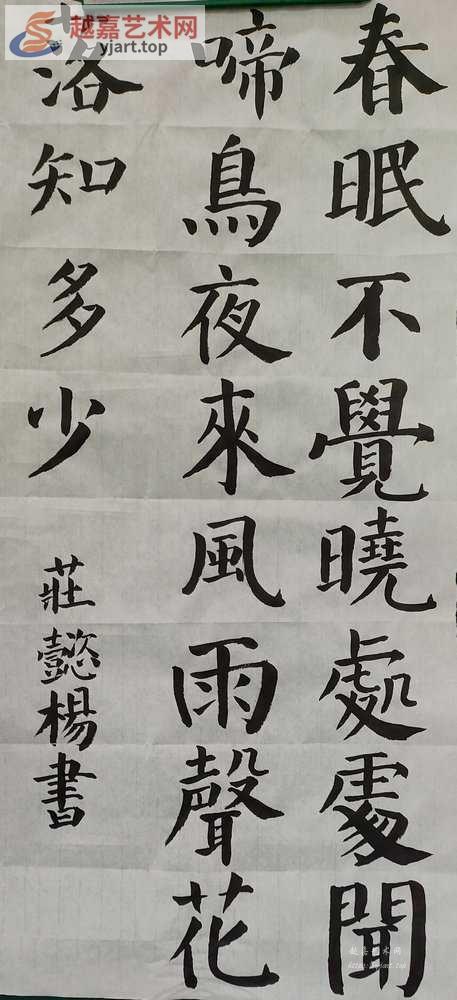 春眠不覺曉處處聞
啼鳥夜來風雨聲花
落知多少
莊懿楊書
越嘉艺术网
yjart.top
越嘉艺术网